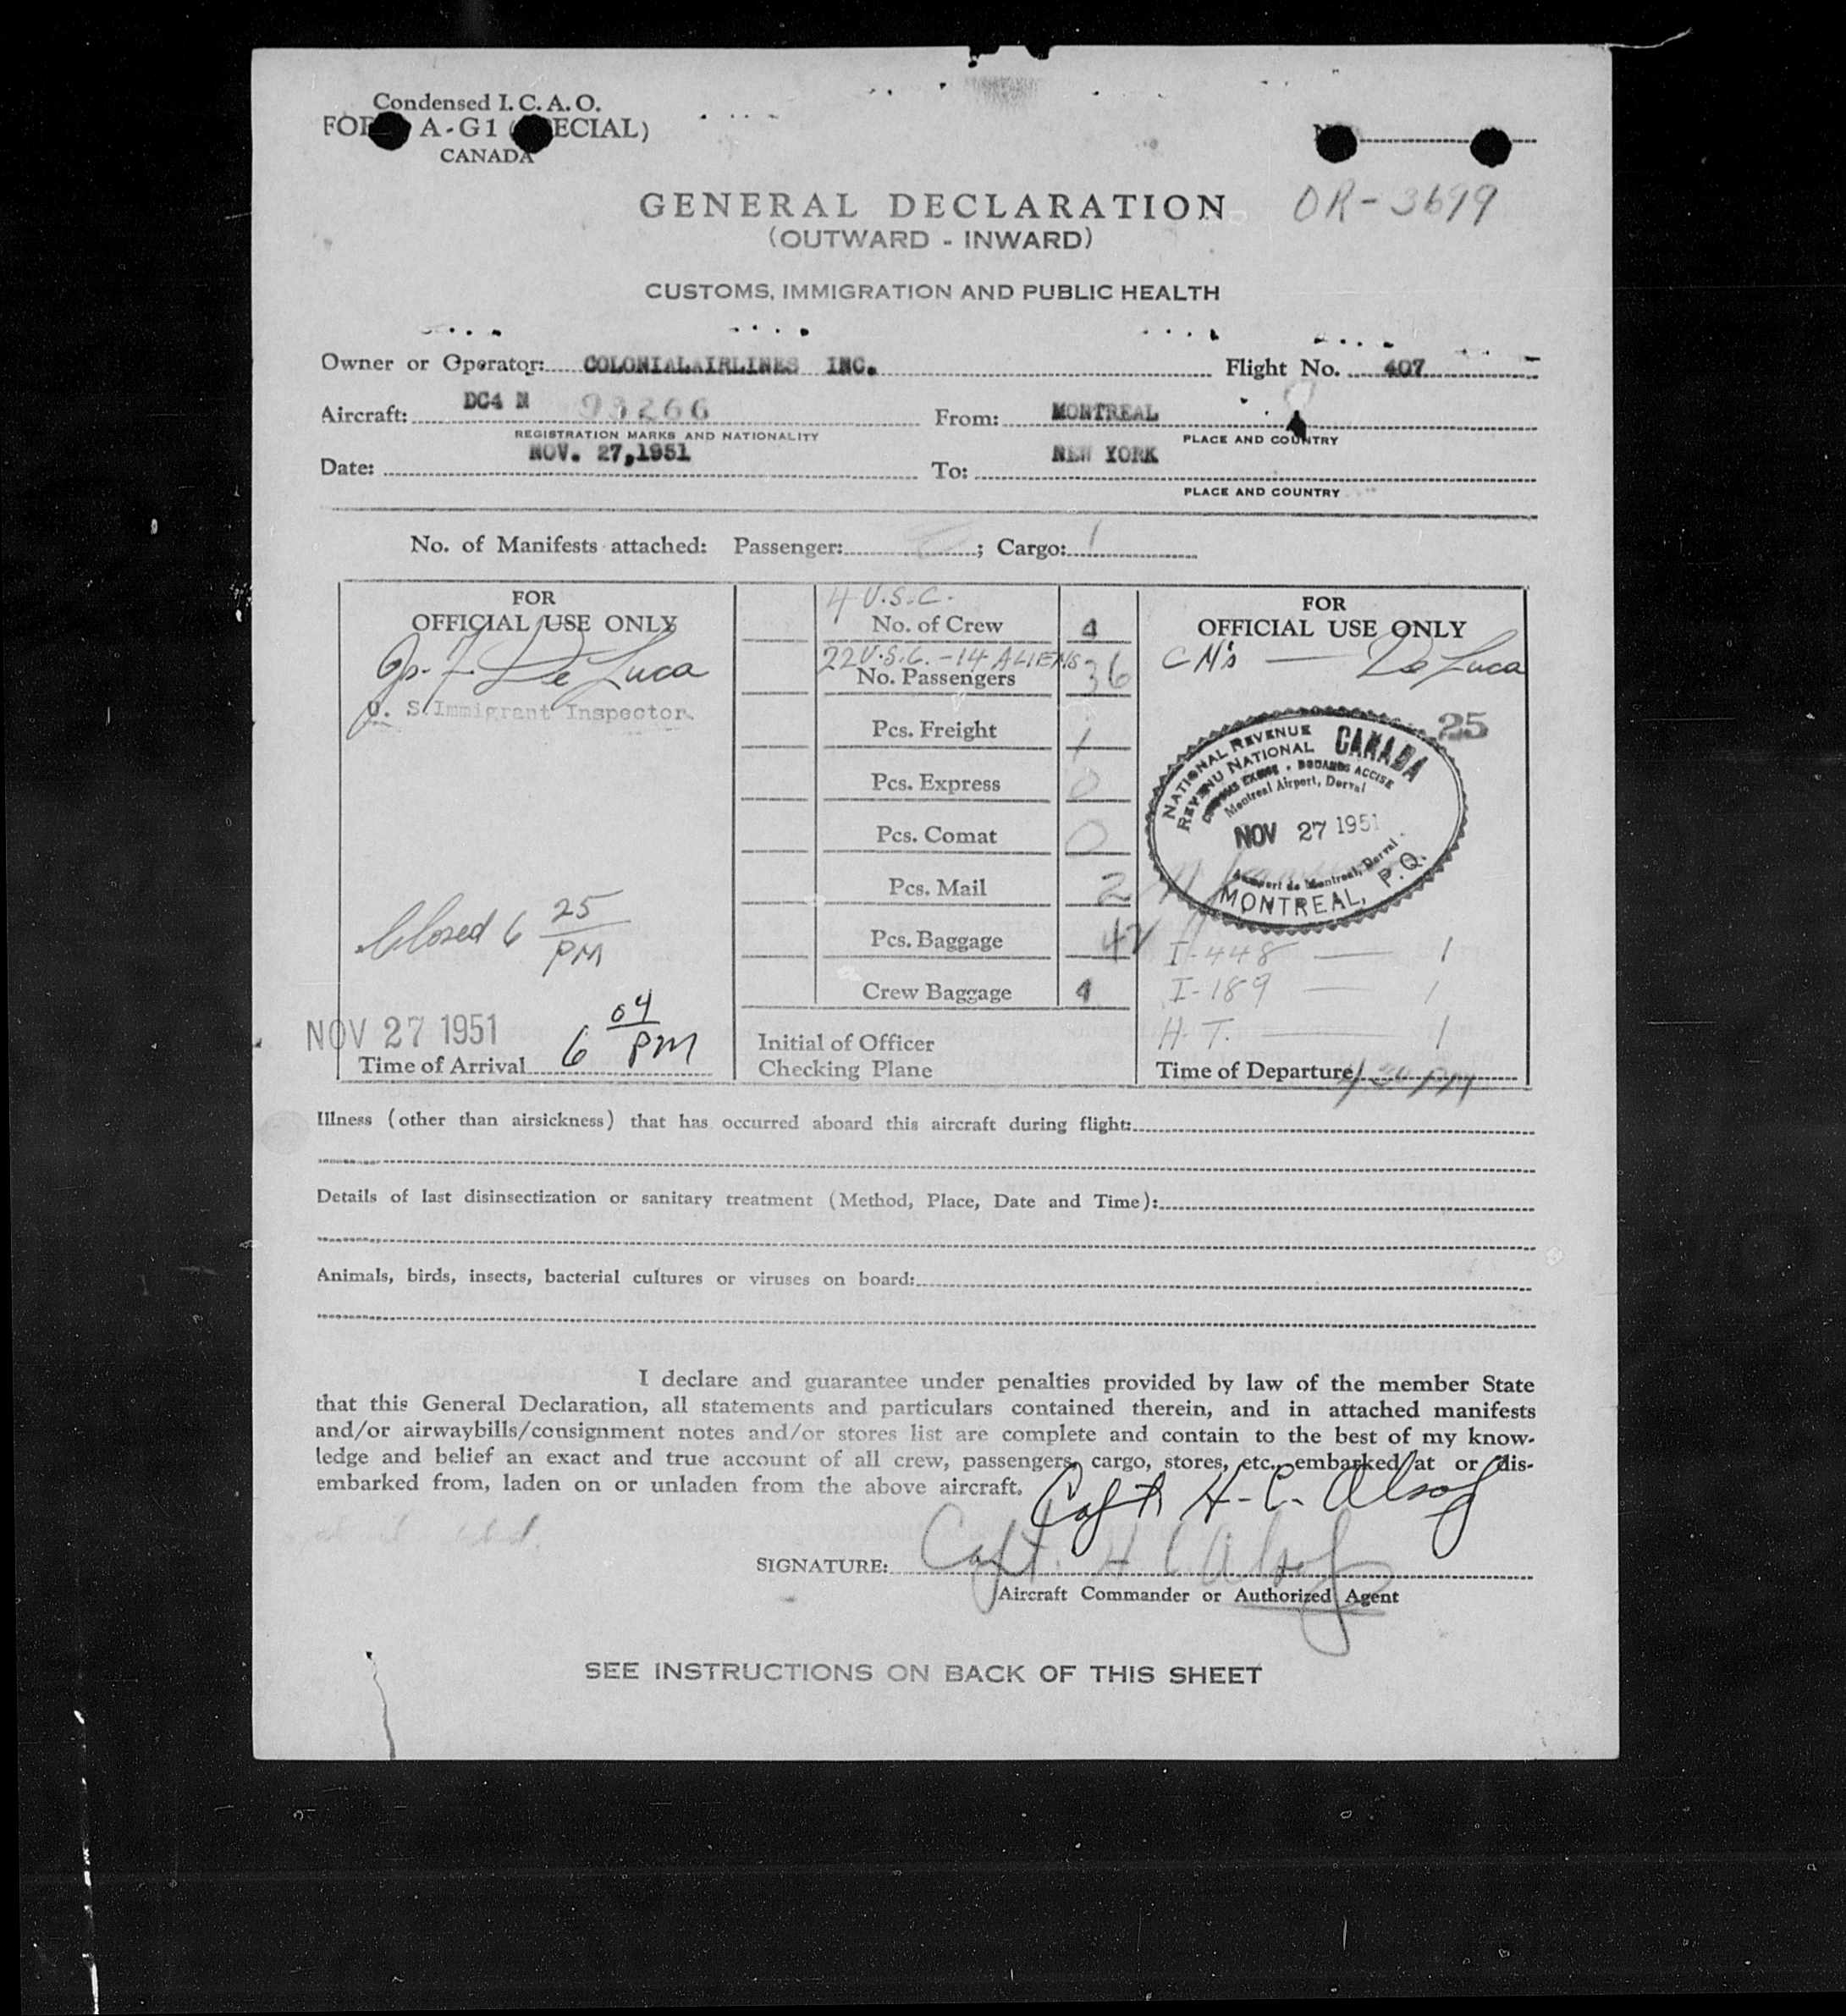 Condensed I. C. A. O.
A-G1 ECIAL)
CANADA
GENERAL DECLARATION
OR-3699
(OUTWARD - INWARD)
CUSTOMS, IMMIGRATION AND PUBLIC HEALTH
Owner or Operator: COLONIALAIRLINES INC. Flight No. 407
Aircraft: DC4 N 93266 From: MONTREAL
REGISTRATION MARKS AND NATIONALITY PLACE AND COUNTRY
Date: NOV. 27,1951 To: NEW YORK
PLACE AND COUNTRY
No. of Manifests attached: Passenger: ; Cargo: 1
FOR
OFFICIAL USE ONLY
De Luca
U. S. Immigrant Inspector
Closed 6 25 PM
NOV 27 1951
Time of Arrival 6 04 PM
4 U.S.C.
No. of Crew 4
22 U.S.C. - 14 ALIENS
No. Passengers 36
Pcs. Freight 1
Pcs. Express 0
Pcs. Comat 0
Pcs. Mail 2
Pcs. Baggage
Crew Baggage 4
Initial of Officer
Checking Plane
FOR
OFFICIAL USE ONLY
CM's — De Luca
25
NATIONAL REVENUE CANADA
REVENU NATIONAL
CUSTOMS EXCISE • DOUANES ACCISE
Montreal Airport, Dorval
NOV 27 1951
Aeroport de Montreal, Dorval
MONTREAL, P.Q.
I-448 — 1
I-189 — 1
H.T. — 1
Time of Departure PM
Illness (other than airsickness) that has occurred aboard this aircraft during flight:
Details of last disinsectization or sanitary treatment (Method, Place, Date and Time):
Animals, birds, insects, bacterial cultures or viruses on board:
I declare and guarantee under penalties provided by law of the member State
that this General Declaration, all statements and particulars contained therein, and in attached manifests
and/or airwaybills/consignment notes and/or stores list are complete and contain to the best of my know-
ledge and belief an exact and true account of all crew, passengers, cargo, stores, etc., embarked at or dis-
embarked from, laden on or unladen from the above aircraft.
Capt H-C. Alsop
SIGNATURE: Capt. H C Alsop
Aircraft Commander or Authorized Agent
SEE INSTRUCTIONS ON BACK OF THIS SHEET